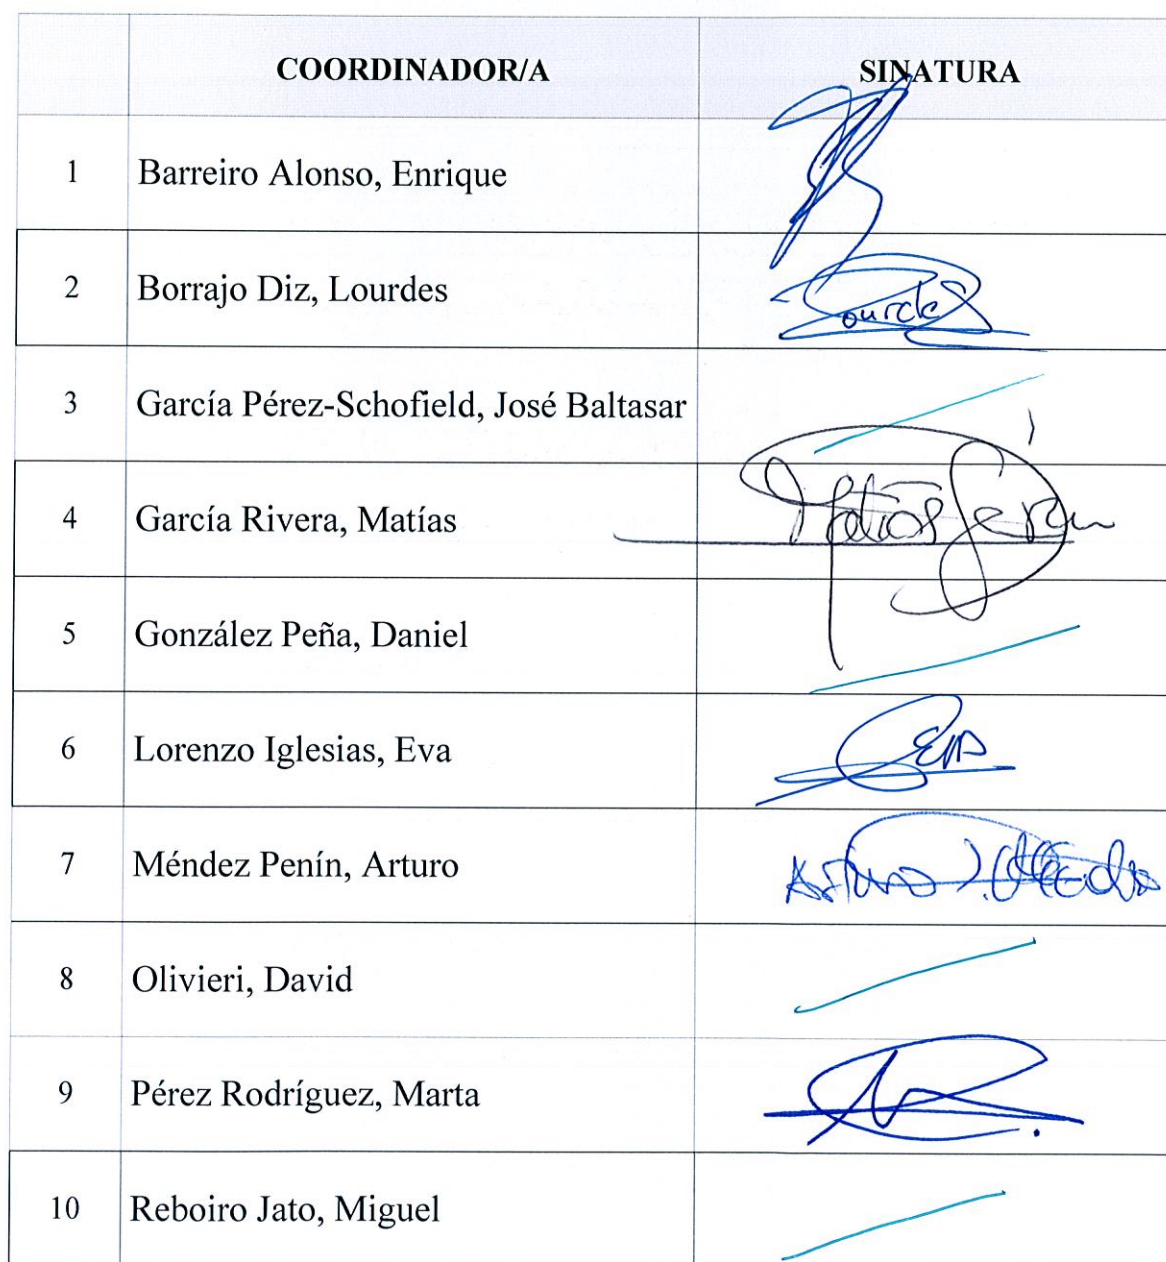 COORDINADOR/A SINATURA
1 Barreiro Alonso, Enrique
2 Borrajo Diz, Lourdes Lourdes
3 García Pérez-Schofield, José Baltasar
4 García Rivera, Matías Matías García
5 González Peña, Daniel
6 Lorenzo Iglesias, Eva Eva
7 Méndez Penín, Arturo Arturo J.
8 Olivieri, David
9 Pérez Rodríguez, Marta
10 Reboiro Jato, Miguel